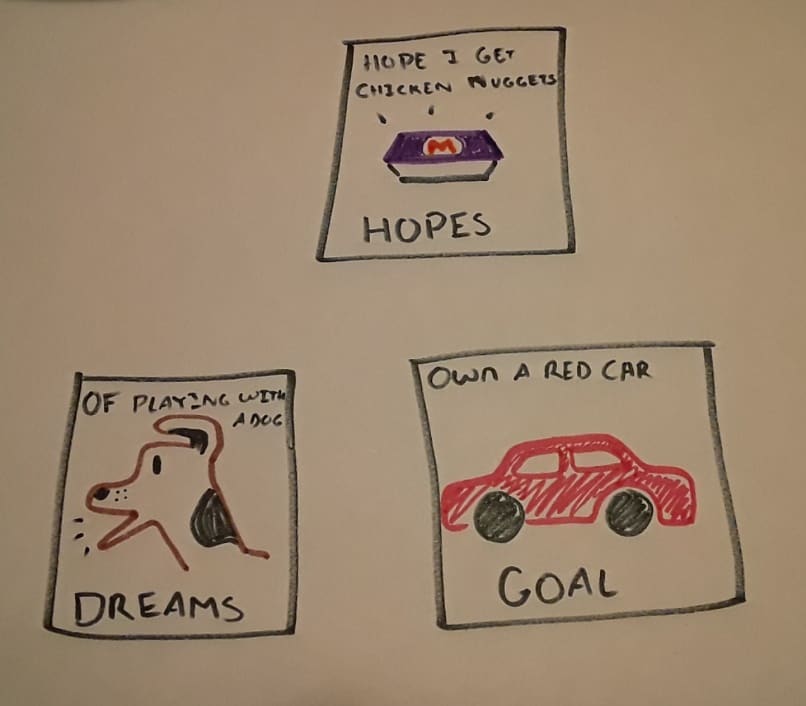 HOPE I GET
CHICKEN NUGGETS
M
HOPES
OF PLAYING WITH
A DOG
DREAMS
OWn A RED CAR
GOAL